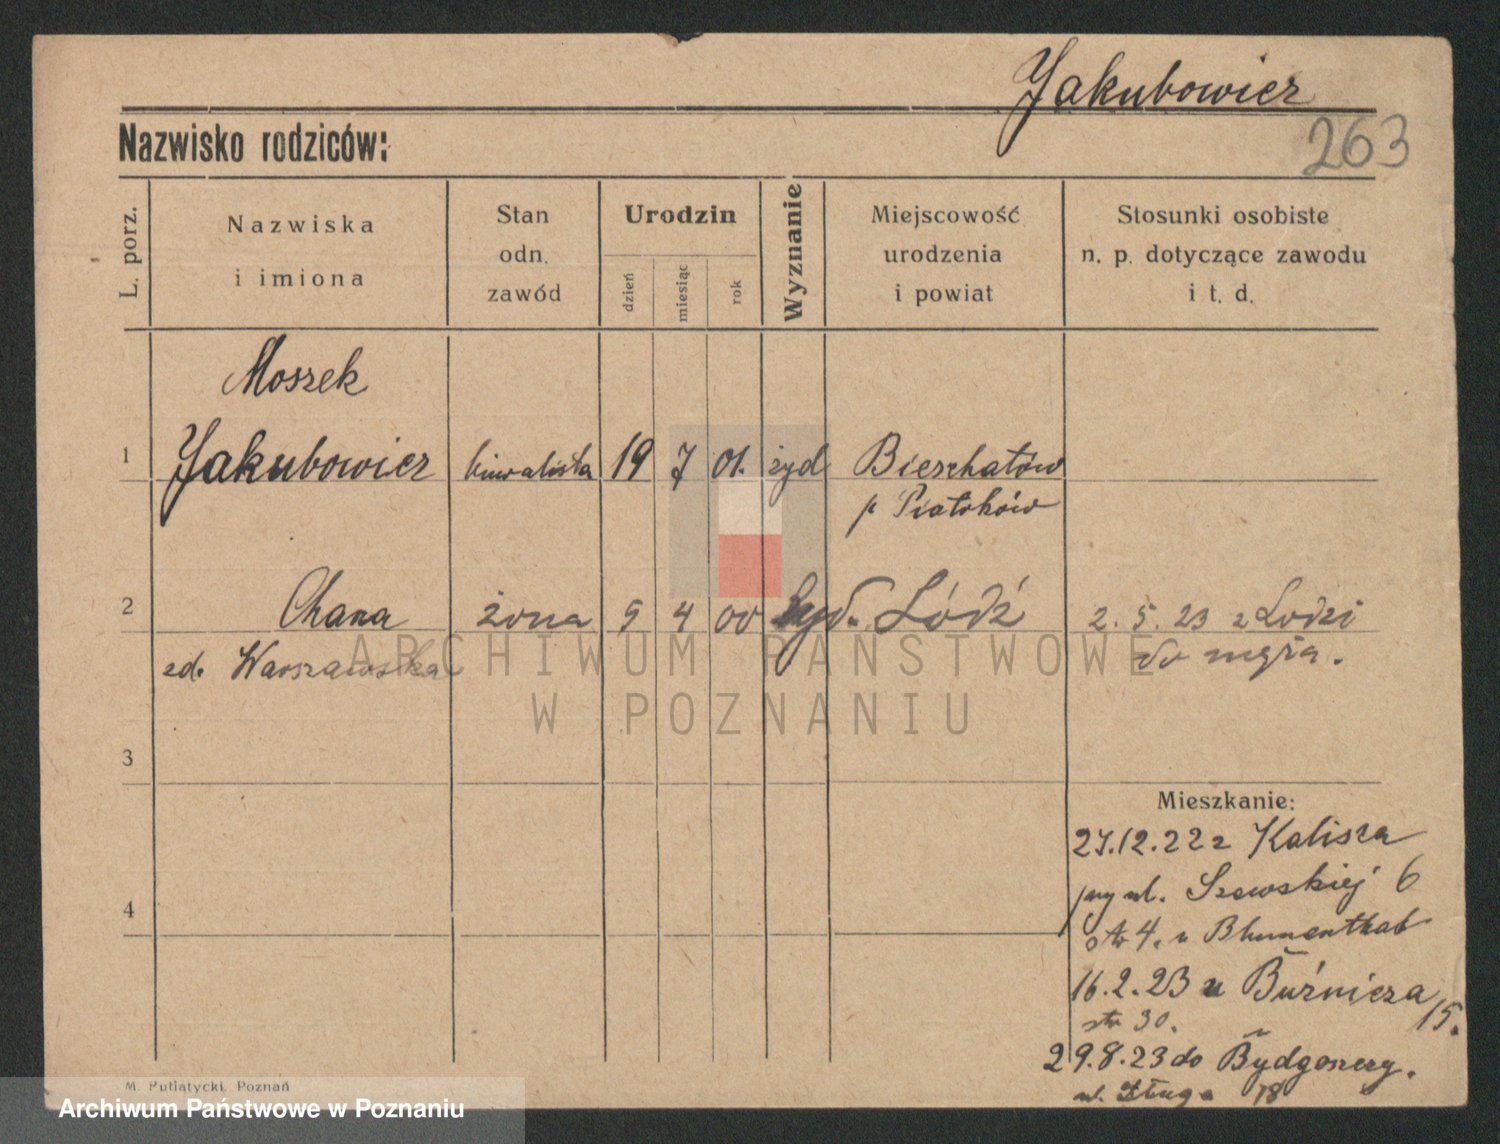 Jakubowicz
263
Nazwisko rodziców:
L. porz.
Nazwiska
i imiona
Stan
odn.
zawód
Urodzin
dzień
miesiąc
rok
Wyznanie
Miejscowość
urodzenia
i powiat
Stosunki osobiste
n. p. dotyczące zawodu
i t. d.
Moszek
1 Jakubowicz 19 7 01. żyd Bierchatów
p
2 Chana żona 5 4 00 żyd. Łódź 2. 5. 23 z Łodzi
zd. Warszawska do męża.
ARCHIWUM PAŃSTWOWE
W POZNANIU
3
Mieszkanie:
27.12.22 z Kalisza
przy ul. Szewskiej 6
4. u Blumenthal
16.2.23 u Buźnicza
15.
str 30.
29.8.23 do Bydgoszczy.
ul. Długa 18
4
M. Putiatycki, Poznań
Archiwum Państwowe w Poznaniu